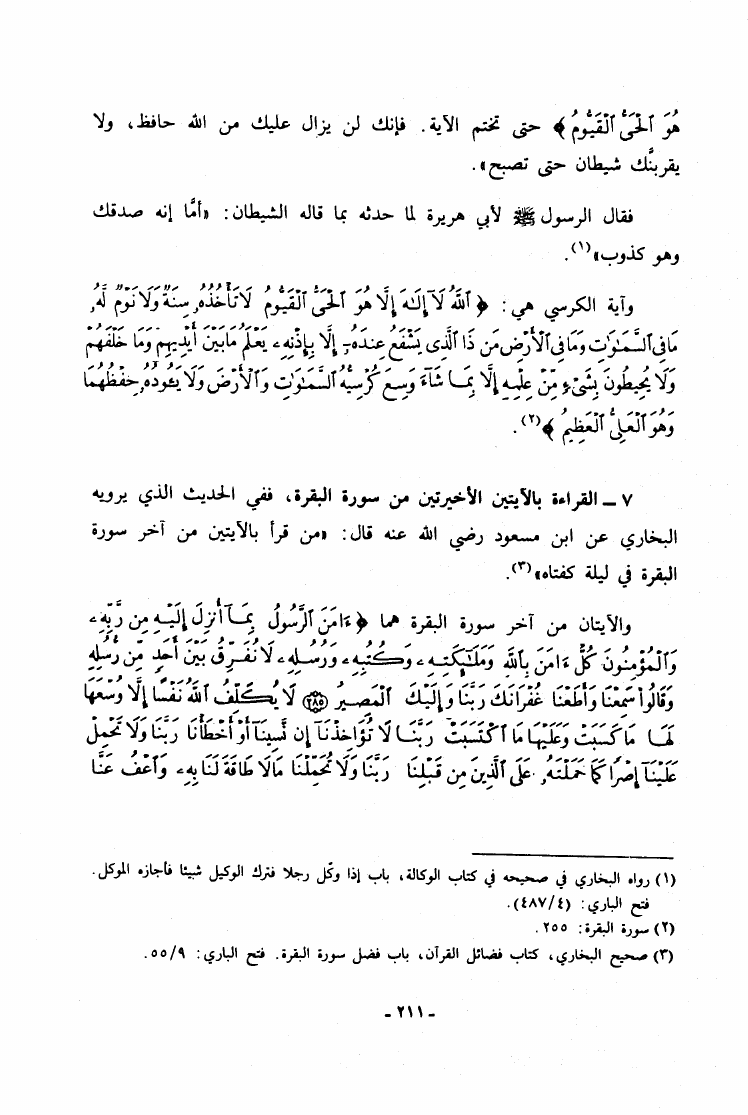 هُوَ ٱلْحَىُّ ٱلْقَيُّومُ ﴾ حتى تختم الآية. فإنك لن يزال عليك من الله حافظ، ولا
يقربنَّك شيطان حتى تصبح».
فقال الرسول ﷺ لأبي هريرة لما حدثه بما قاله الشيطان: «أمَّا إنه صدقك
وهو كذوب»(١).
وآية الكرسي هي: ﴿ ٱللَّهُ لَآ إِلَٰهَ إِلَّا هُوَ ٱلْحَىُّ ٱلْقَيُّومُ لَا تَأْخُذُهُۥ سِنَةٌ وَلَا نَوْمٌ لَّهُۥ
مَا فِى ٱلسَّمَٰوَٰتِ وَمَا فِى ٱلْأَرْضِ مَن ذَا ٱلَّذِى يَشْفَعُ عِندَهُۥٓ إِلَّا بِإِذْنِهِۦ يَعْلَمُ مَا بَيْنَ أَيْدِيهِمْ وَمَا خَلْفَهُمْ
وَلَا يُحِيطُونَ بِشَىْءٍ مِّنْ عِلْمِهِۦٓ إِلَّا بِمَا شَآءَ وَسِعَ كُرْسِيُّهُ ٱلسَّمَٰوَٰتِ وَٱلْأَرْضَ وَلَا يَـُٔودُهُۥ حِفْظُهُمَا
وَهُوَ ٱلْعَلِىُّ ٱلْعَظِيمُ ﴾(٢).
٧ ـ القراءة بالآيتين الأخيرتين من سورة البقرة، ففي الحديث الذي يرويه
البخاري عن ابن مسعود رضي الله عنه قال: «من قرأ بالآيتين من آخر سورة
البقرة في ليلة كفتاه»(٣).
والآيتان من آخر سورة البقرة هما ﴿ ءَامَنَ ٱلرَّسُولُ بِمَآ أُنزِلَ إِلَيْهِ مِن رَّبِّهِۦ
وَٱلْمُؤْمِنُونَ كُلٌّ ءَامَنَ بِٱللَّهِ وَمَلَٰٓئِكَتِهِۦ وَكُتُبِهِۦ وَرُسُلِهِۦ لَا نُفَرِّقُ بَيْنَ أَحَدٍ مِّن رُّسُلِهِۦ
وَقَالُوا۟ سَمِعْنَا وَأَطَعْنَا غُفْرَانَكَ رَبَّنَا وَإِلَيْكَ ٱلْمَصِيرُ ٢٨٥ لَا يُكَلِّفُ ٱللَّهُ نَفْسًا إِلَّا وُسْعَهَا
لَهَا مَا كَسَبَتْ وَعَلَيْهَا مَا ٱكْتَسَبَتْ رَبَّنَا لَا تُؤَاخِذْنَآ إِن نَّسِينَآ أَوْ أَخْطَأْنَا رَبَّنَا وَلَا تَحْمِلْ
عَلَيْنَآ إِصْرًا كَمَا حَمَلْتَهُۥ عَلَى ٱلَّذِينَ مِن قَبْلِنَا رَبَّنَا وَلَا تُحَمِّلْنَا مَا لَا طَاقَةَ لَنَا بِهِۦ وَٱعْفُ عَنَّا
(١) رواه البخاري في صحيحه في كتاب الوكالة، باب إذا وكّل رجلا فترك الوكيل شيئا فأجازه الموكل.
فتح الباري: (٤/٤٨٧).
(٢) سورة البقرة: ٢٥٥.
(٣) صحيح البخاري، كتاب فضائل القرآن، باب فضل سورة البقرة. فتح الباري: ٩/٥٥.
- ٢١١ -